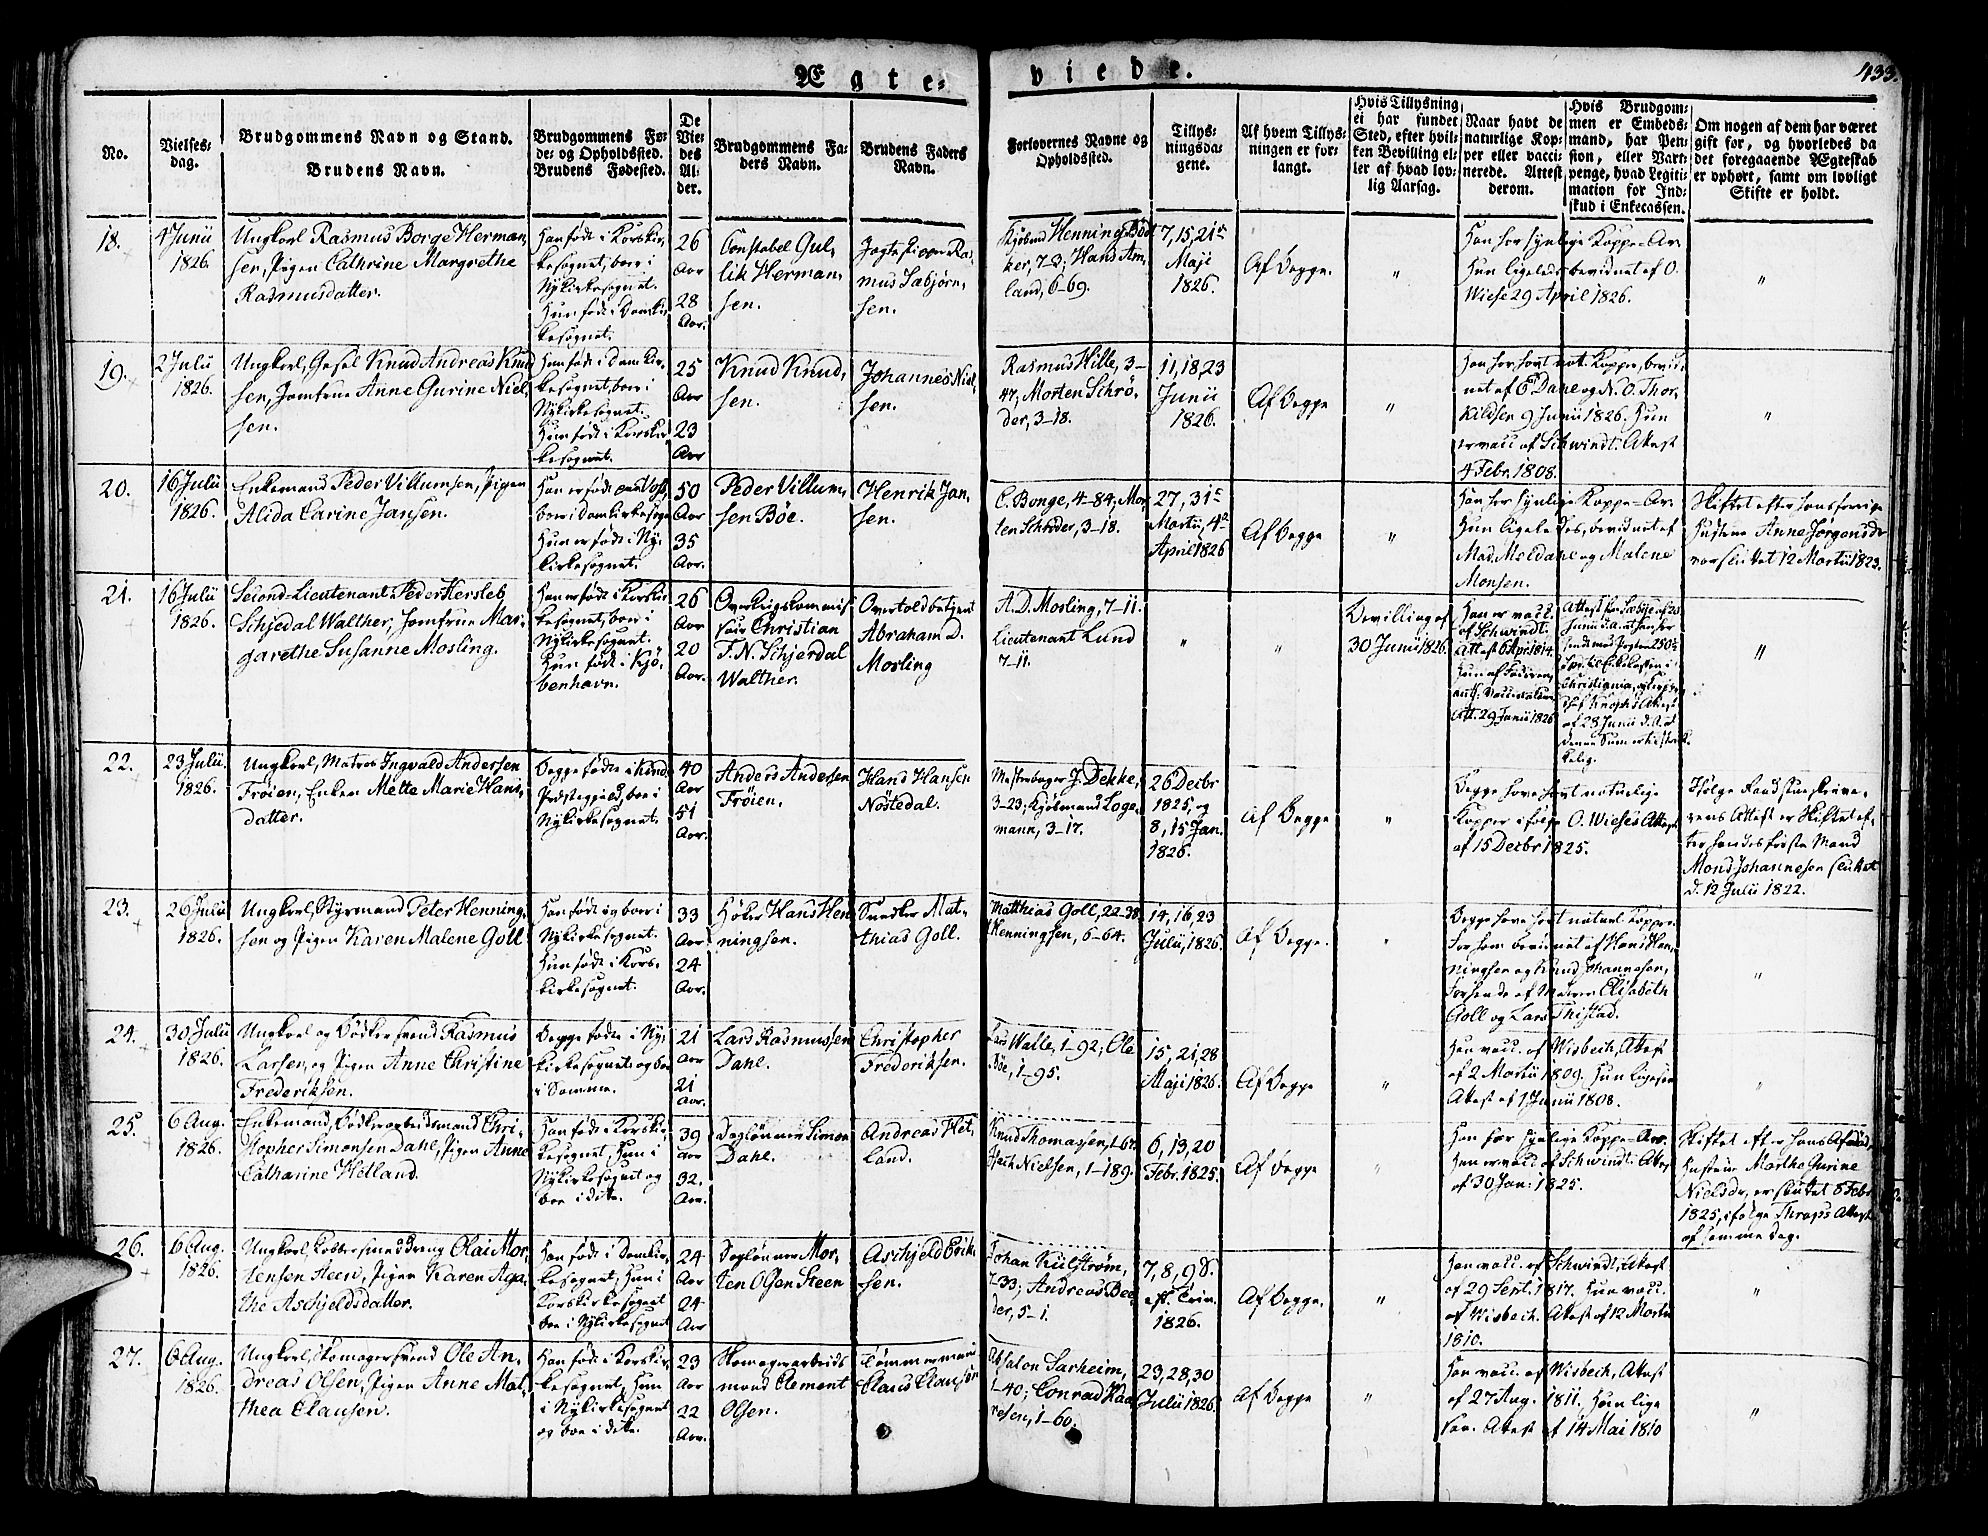 Ægte-
viede.
433.
No.
Vielses-
dag.
Brudgommens Navn og Stand.
Brudens Navn.
Brudgommens Fø-
de- og Opholdssted.
Brudens Fødested.
De
Vie-
des
Al-
der.
Brudgommens Fa-
ders Navn.
Brudens Faders
Navn.
Forlovernes Navne og
Opholdssted.
Tillys-
ningsda-
gene.
Af hvem Tillys-
ningen er for-
langt.
Hvis Tillysning
ei har fundet
Sted, efter hvil-
ken Bevilling el-
ler af hvad lov-
lig Aarsag.
Naar havt de
naturlige Kop-
per eller vacci-
nerede. Attest
derom.
Hvis Brudgom-
men er Embeds-
mand, har Pen-
sion, eller Vart-
penge, hvad Legiti-
mation for Ind-
skud i Enkecassen.
Om nogen af dem har været
gift før, og hvorledes da
det foregaaende Ægteskab
er ophørt, samt om lovligt
Skifte er holdt.
18.
4 Junii
1826.
Ungkarl Rasmus Borge Herman-
sen, Pigen Cathrine Margrethe
Rasmusdatter.
Han født i Korskir-
kesognet, boer i
Nykirkesognet.
Hun født i Domkir-
kesognet.
26
Aar
28
Aar.
Constabel Gul-
lik Herman-
sen.
Ras-
mus Sæbjørn-
sen.
Kjøbmd Henning Bød-
ker, 7-3; Hans Am-
land, 6-69.
7, 15, 21de
Maji
1826.
Af Begge.
"
Han har synlige Koppe-Ar.
Hun ligeledes bevidnet af O.
Wiese 29 April 1826.
"
19.
2 Julii
1826.
Ungkarl, Gesel Knud Andreas Knud-
sen, Jomfrue Anne Gurine Niel-
sen.
Han født i Domkir-
kesognet, boer i
Nykirkesognet.
Hun født i Korskir-
kesognet.
25
Aar
23
Aar
Knud Knud-
sen.
Johannes Niel-
sen.
Rasmus Hille, 3-
47; Morten Schrø-
der, 3-18.
11, 18, 23
Junii
1826.
Af Begge
"
Han har havt nat. Kopper, bevid-
net af E. Dahl og N. O. Thor-
kildsen 9 Junii 1826. Hun
er vacc. af Schwindt. Attest
4 Febr. 1808.
"
20.
16 Julii
1826.
Enkemand Peder Villumsen, Pigen
Alida Carine Jansen.
Han er født paa Vos,
boer i Domkirkesogn
Hun er født i Ny-
kirkesognet.
50
Aar
35
Aar.
Peder Villum-
sen Böe.
Henrik Jan-
sen.
C. Bonge, 4-84; Mor-
ten Schrøder, 3-18.
27, 31te
Martii, 4de
April 1826
Af Begge
"
Han har synlige Koppe-Ar.
Hun ligeledes, bevidnet af
Mad. Meldahl og Malene
Monsen.
Skiftet efter hans forrige
Hustrue Anne Jørgensdr
var sluttet 12 Martii 1823.
21.
16 Julii
1826.
Second-Lieutenant Peder Hersleb
Schjedal Walther, Jomfrue Mar-
garethe Susanne Mosling.
Han er født i Korskir-
kesognet, boer i
Nykirkesognet.
Hun født i Kjø-
benhavn.
26
Aar
20
Aar.
Overkrigskommis-
sair Christian
F. N. Schjerdal
Walther.
Overtoldbetjent
Abraham D.
Mosling
A. D. Mosling, 7-11.
Lieutenant Lund
7-11.
"
"
Bevilling af
30 Junii 1826.
Han er vacc.
af Schwindt.
Attest 6 April 1814.
Att. 29 Junii 1826
Christiania,
af 28 Junii d. A. at
denne Sum er tilstræk-
kelig.
"
22.
23 Julii.
1826.
Ungkarl, Matros Ingvald Andersen
Frøien, Enken Mette Marie Hans-
datter.
Begge fødte i Kinds
Præstegjeld, boe i
Nykirkesognet.
40
Aar
51
Aar.
Anders Andersen
Frøien.
Hans Hansen
Nöstedal.
J. Dekke,
3-23; Kjøbmand Loge-
mann, 3-17.
26 Decbr
1825, og
8, 15 Jan.
1826.
Af Begge
"
Begge have havt naturlige
Kopper i følge O. Wieses Attest
af 15 Decbr 1825.
Ifølge
rens Attest er Skiftet ef-
ter hendes første Mand
Mons Johannesen sluttet
d. 12 Julii 1822.
23.
26 Julii
1826.
Ungkarl, Styrmand Peter Henning-
sen og Pigen Karen Malene Goll
Han født og boer i
Nykirkesognet.
Hun født i Kors-
kirkesognet.
33
Aar.
24
Aar.
Høker Hans Hen-
ningsen.
Snedker Mat-
thias Goll.
Matthias Goll, 22-38.
Henningsen, 6-64.
14, 16, 23
Julii, 1826.
Af Begge.
"
Begge have havt naturl. Kopper.
For ham bevidnet af Hans Hen-
ningsen og Knud Johannesen,
For hende af Madam Elisabeth
Goll og Lars Thistad.
"
24.
30 Julii
1826.
Ungkarl og Bødkersvend Rasmus
Larsen, og Pigen Anne Christine
Frederiksen.
Begge fødte i Ny-
kirkesognet og boe
i Samme.
21
Aar
21
Aar.
Lars Rasmussen
Dahl.
Christopher
Frederiksen.
Lars Walle, 1-92; Ole
Böe, 1-95.
15, 21, 28
Maji 1826.
Af Begge
"
Han vacc. af Wisbech, Attest
af 2 Martii 1809. Hun ligesaa
Attest af 1 Junii 1808.
"
25.
6 Aug.
1826.
Enkemand, Bødkerarbeidsmand Chri-
stopher Simonsen Dahl, Pigen Anne
Catharine Hetland.
Han født i Korskir-
kesognet, Hun i
Nykirkesognet og
boe i dito.
39
Aar
32.
Aar.
Dagløn̄er Simon
Dahl.
Andreas Het-
land.
Knud Thomassen, 1-67.
Nielsen, 1-189.
6, 13, 20
Febr. 1825.
Af Begge
"
Han har synlige Koppe-Ar.
Hun er vacc. af Schwindt. Attest
af 30 Jan: 1825.
Skiftet efter hans Afdøde
Hustrue Marthe Gurine
Nielsdr, er sluttet 8 Febr
1825, ifølge Thraps Attest
af samme Dag.
26.
6 Aug.
1826.
Ungkarl, Kobbersmeddreng Olai Mor-
tensen Steen, Pigen Karen Aga-
the Aschjeldsdatter.
Han født i Domkir-
kesognet, Hun i
Korskirkesognet
boe i Nykirkesognet
24
Aar
24
Aar
Dagløn̄er Mor-
ten Olsen Steen
Aschjeld Erik-
sen.
Johan Kulstrøm,
7-33; Andreas Bee-
der, 5-1.
7, 8, 9 S.
eft. Trin.
1826.
Af Begge.
"
Han vacc. af Schwindt, Attest
af 29 Sept. 1817. Hun vacc.
af Wisbech. Attest af 12 Martii
1810.
"
27.
6 Aug.
1826.
Ungkarl, Skomagersvend Ole An-
dreas Olsen, Pigen Anne Mat-
thea Clausen.
Han født i Korskir-
kesognet, Hun
i Nykirkesognet
og boe i dito.
23
Aar
22
Aar.
Skomagerarbeids-
mand Clement
Olsen.
Tømmermand
Claus Clausen
Absalon Sarheim,
1-40; Conrad Haa-
resen, 1-60.
23, 28, 30
Julii 1826.
Af Begge
"
Han vacc. af Wisbech, Attest
af 27 Aug. 1811. Hun lige
saa. Attest af 14 Mai 1810
"